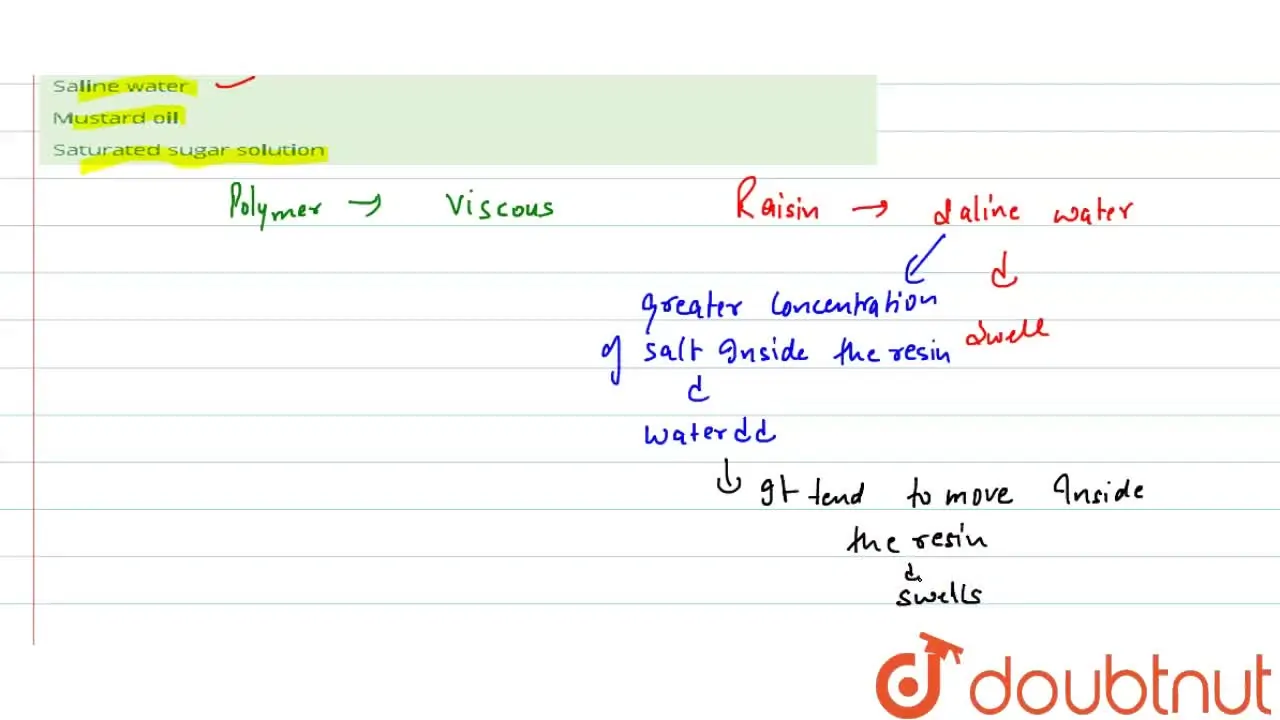 Saline water
Mustard oil
Saturated sugar solution
Polymer → Viscous
Raisin → Saline water
greater concentration
of salt Inside the resin
swell
water ↓↓
It tend to move Inside
the resin
swells
doubtnut